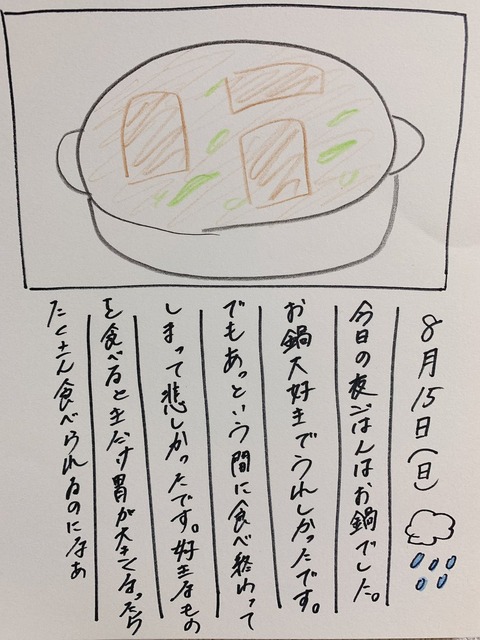 8月15日(日)
今日の夜ごはんはお鍋でした。
お鍋大好きでうれしかったです。
でもあっという間に食べ終わって
しまって悲しかったです。好きなもの
を食べるときだけ胃が大きくなったら
たくさん食べられるのになあ